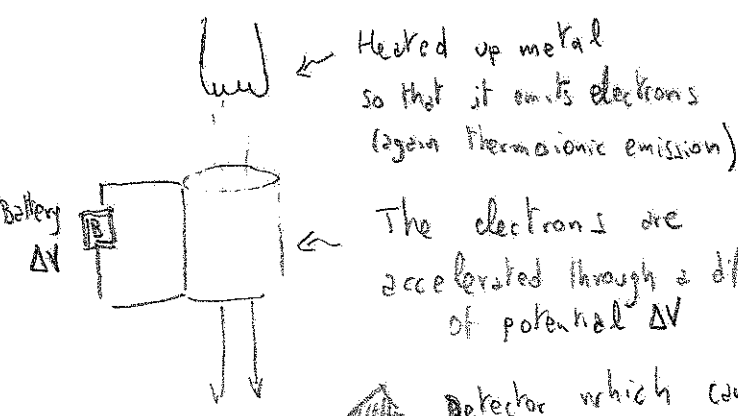 Heated up metal
so that it emits electrons
(again thermoionic emission)
Battery
B
ΔV
The electrons are
accelerated through a
of potential ΔV
Detector which